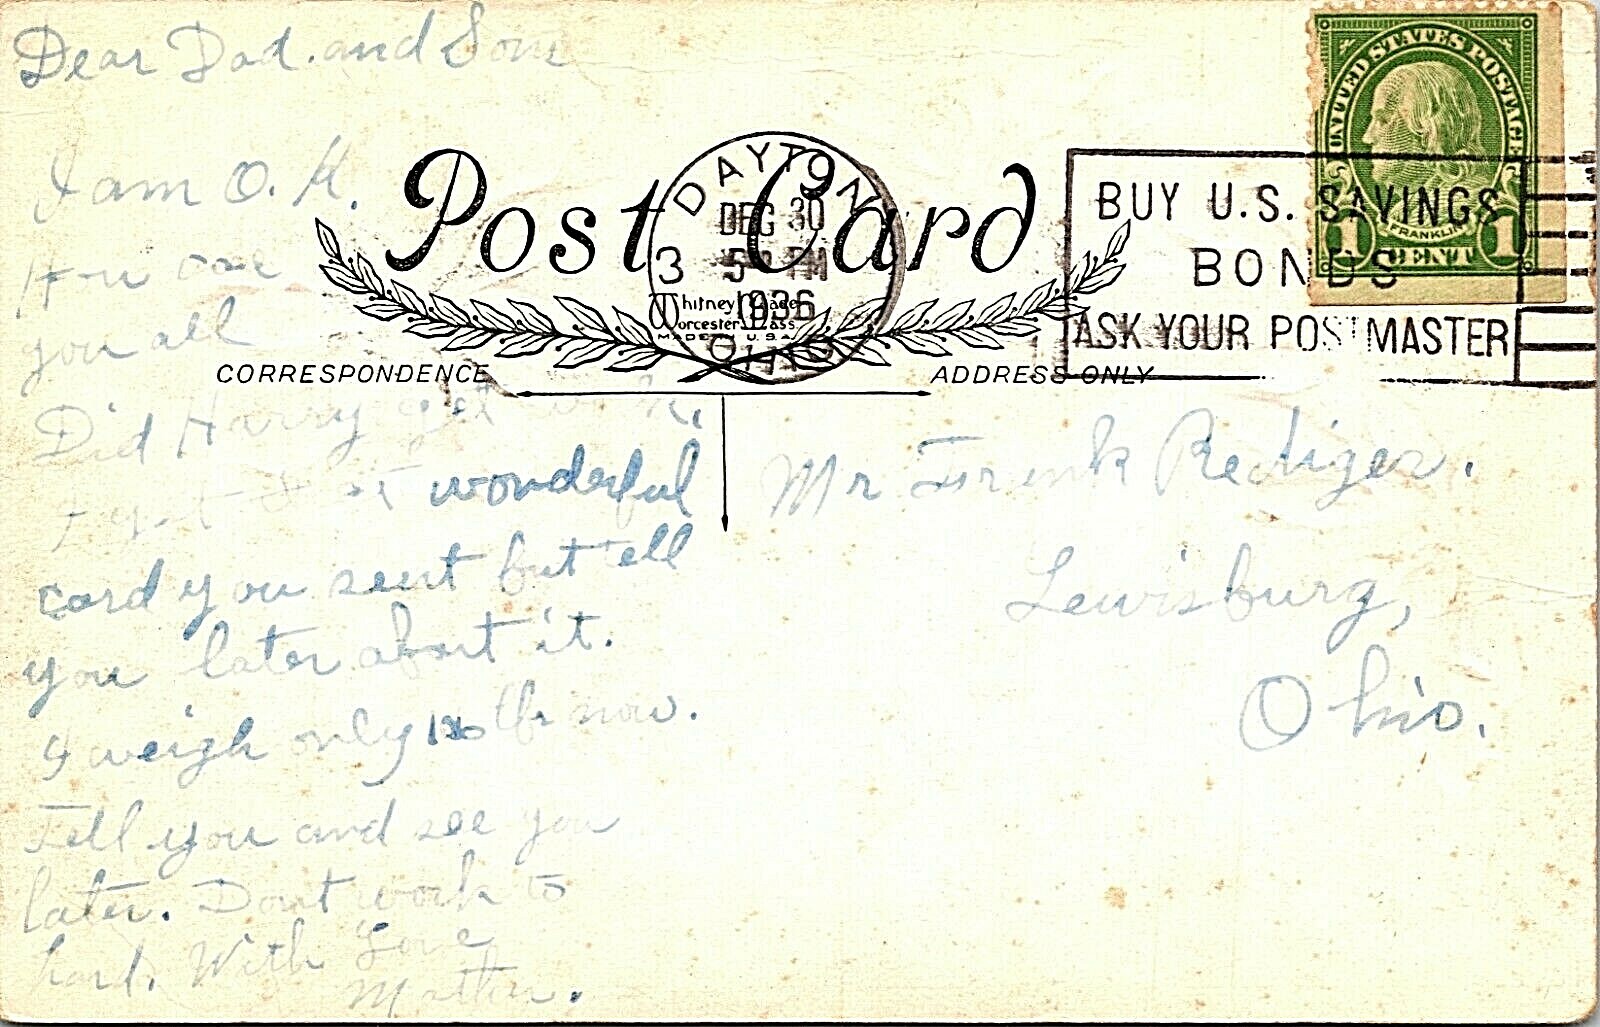 Dear Dad. and Son
I am O.K.
How are
you all
Did Harry get
I got wonderful
card you sent but tell
you later about it.
I weigh only now.
Tell you and see you
later. Dont work to
hard. With Love
Mother.
Post Card
Whitney Made
Worcester Mass.
MADE IN U.S.A.
CORRESPONDENCE
ADDRESS ONLY
DAYTON
DEC 30
3 5 PM
1936
OHIO
UNITED STATES POSTAGE
FRANKLIN
1 CENT 1
BUY U.S. SAVINGS
BONDS
ASK YOUR POSTMASTER
Mr Frank Rediger.
Lewisburg,
Ohio.